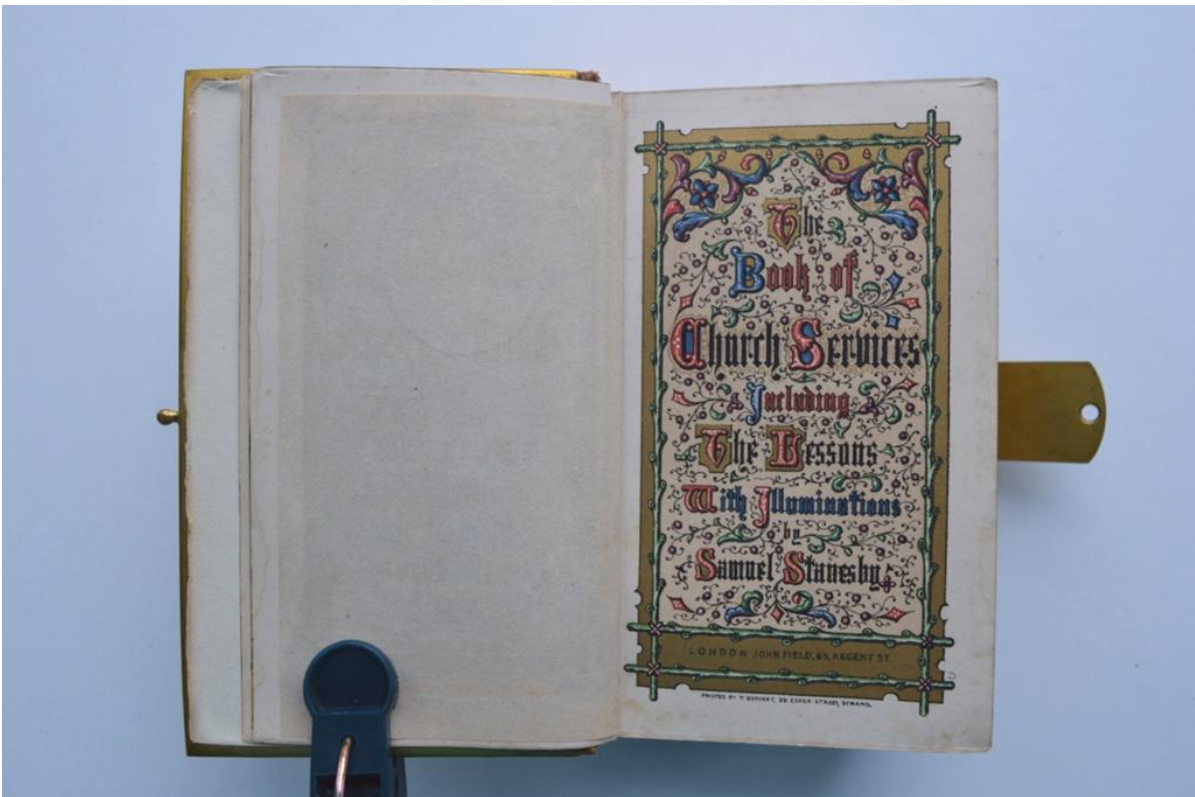 The
Book of
Church Services
Including
The Lessons
With Illuminations
by
Samuel Stanesby
LONDON JOHN FIELD, 65, REGENT ST.
PRINTED BY T. 28 ESSEX STREET, STRAND.